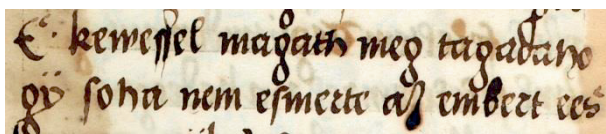 E· kewessel magath meg tagadaho
gÿ soha nem esmerte az embert ees